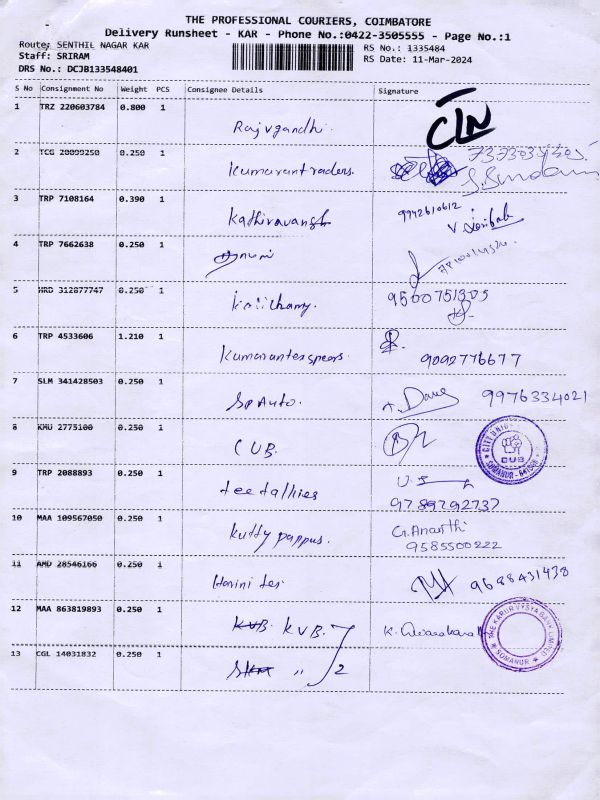 THE PROFESSIONAL COURIERS, COIMBATORE
Delivery Runsheet - KAR - Phone No.:0422-3505555 - Page No.:1
Route: SENTHIL NAGAR KAR
RS No.: 1335484
Staff: SRIRAM
RS Date: 11-Mar-2024
DRS No.: DCJB133548401
S No Consignment No Weight PCS Consignee Details Signature
1 TRZ 220603784 0.800 1 Rajvgandhi. CLN
2 TCG 20099250 0.250 1 Kumaran traders. S. Sundam
3 TRP 7108164 0.390 1 Kathiravan 9942610612
4 TRP 7662638 0.250 1
5 HRD 312877747 0.250 1 Kalichamy. 9500751305
6 TRP 4533606 1.210 1 9092776677
7 SLM 341428503 0.250 1 SP Auto. 9976334021
8 KMU 2775100 0.250 1 CUB. CITY UNION CUB SOMANUR
9 TRP 2088893 0.250 1 teetallies 9789792737
10 MAA 109567050 0.250 1 Kutty pappus. G. Ananthi
9585500222
11 AMD 28546166 0.250 1 9688431438
12 MAA 863819893 0.250 1 KVB KVB. THE KARUR VYSYA BANK LIMITED SOMANUR
13 CGL 14031832 0.250 1 ,, 2